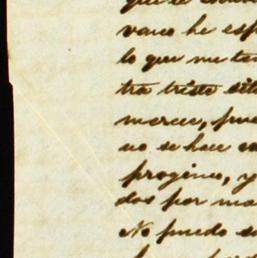 que se
vano he esp
lo que me ten
tra triste sit
merece, pue
no se hace
progimo, y
dos por ma
No puedo